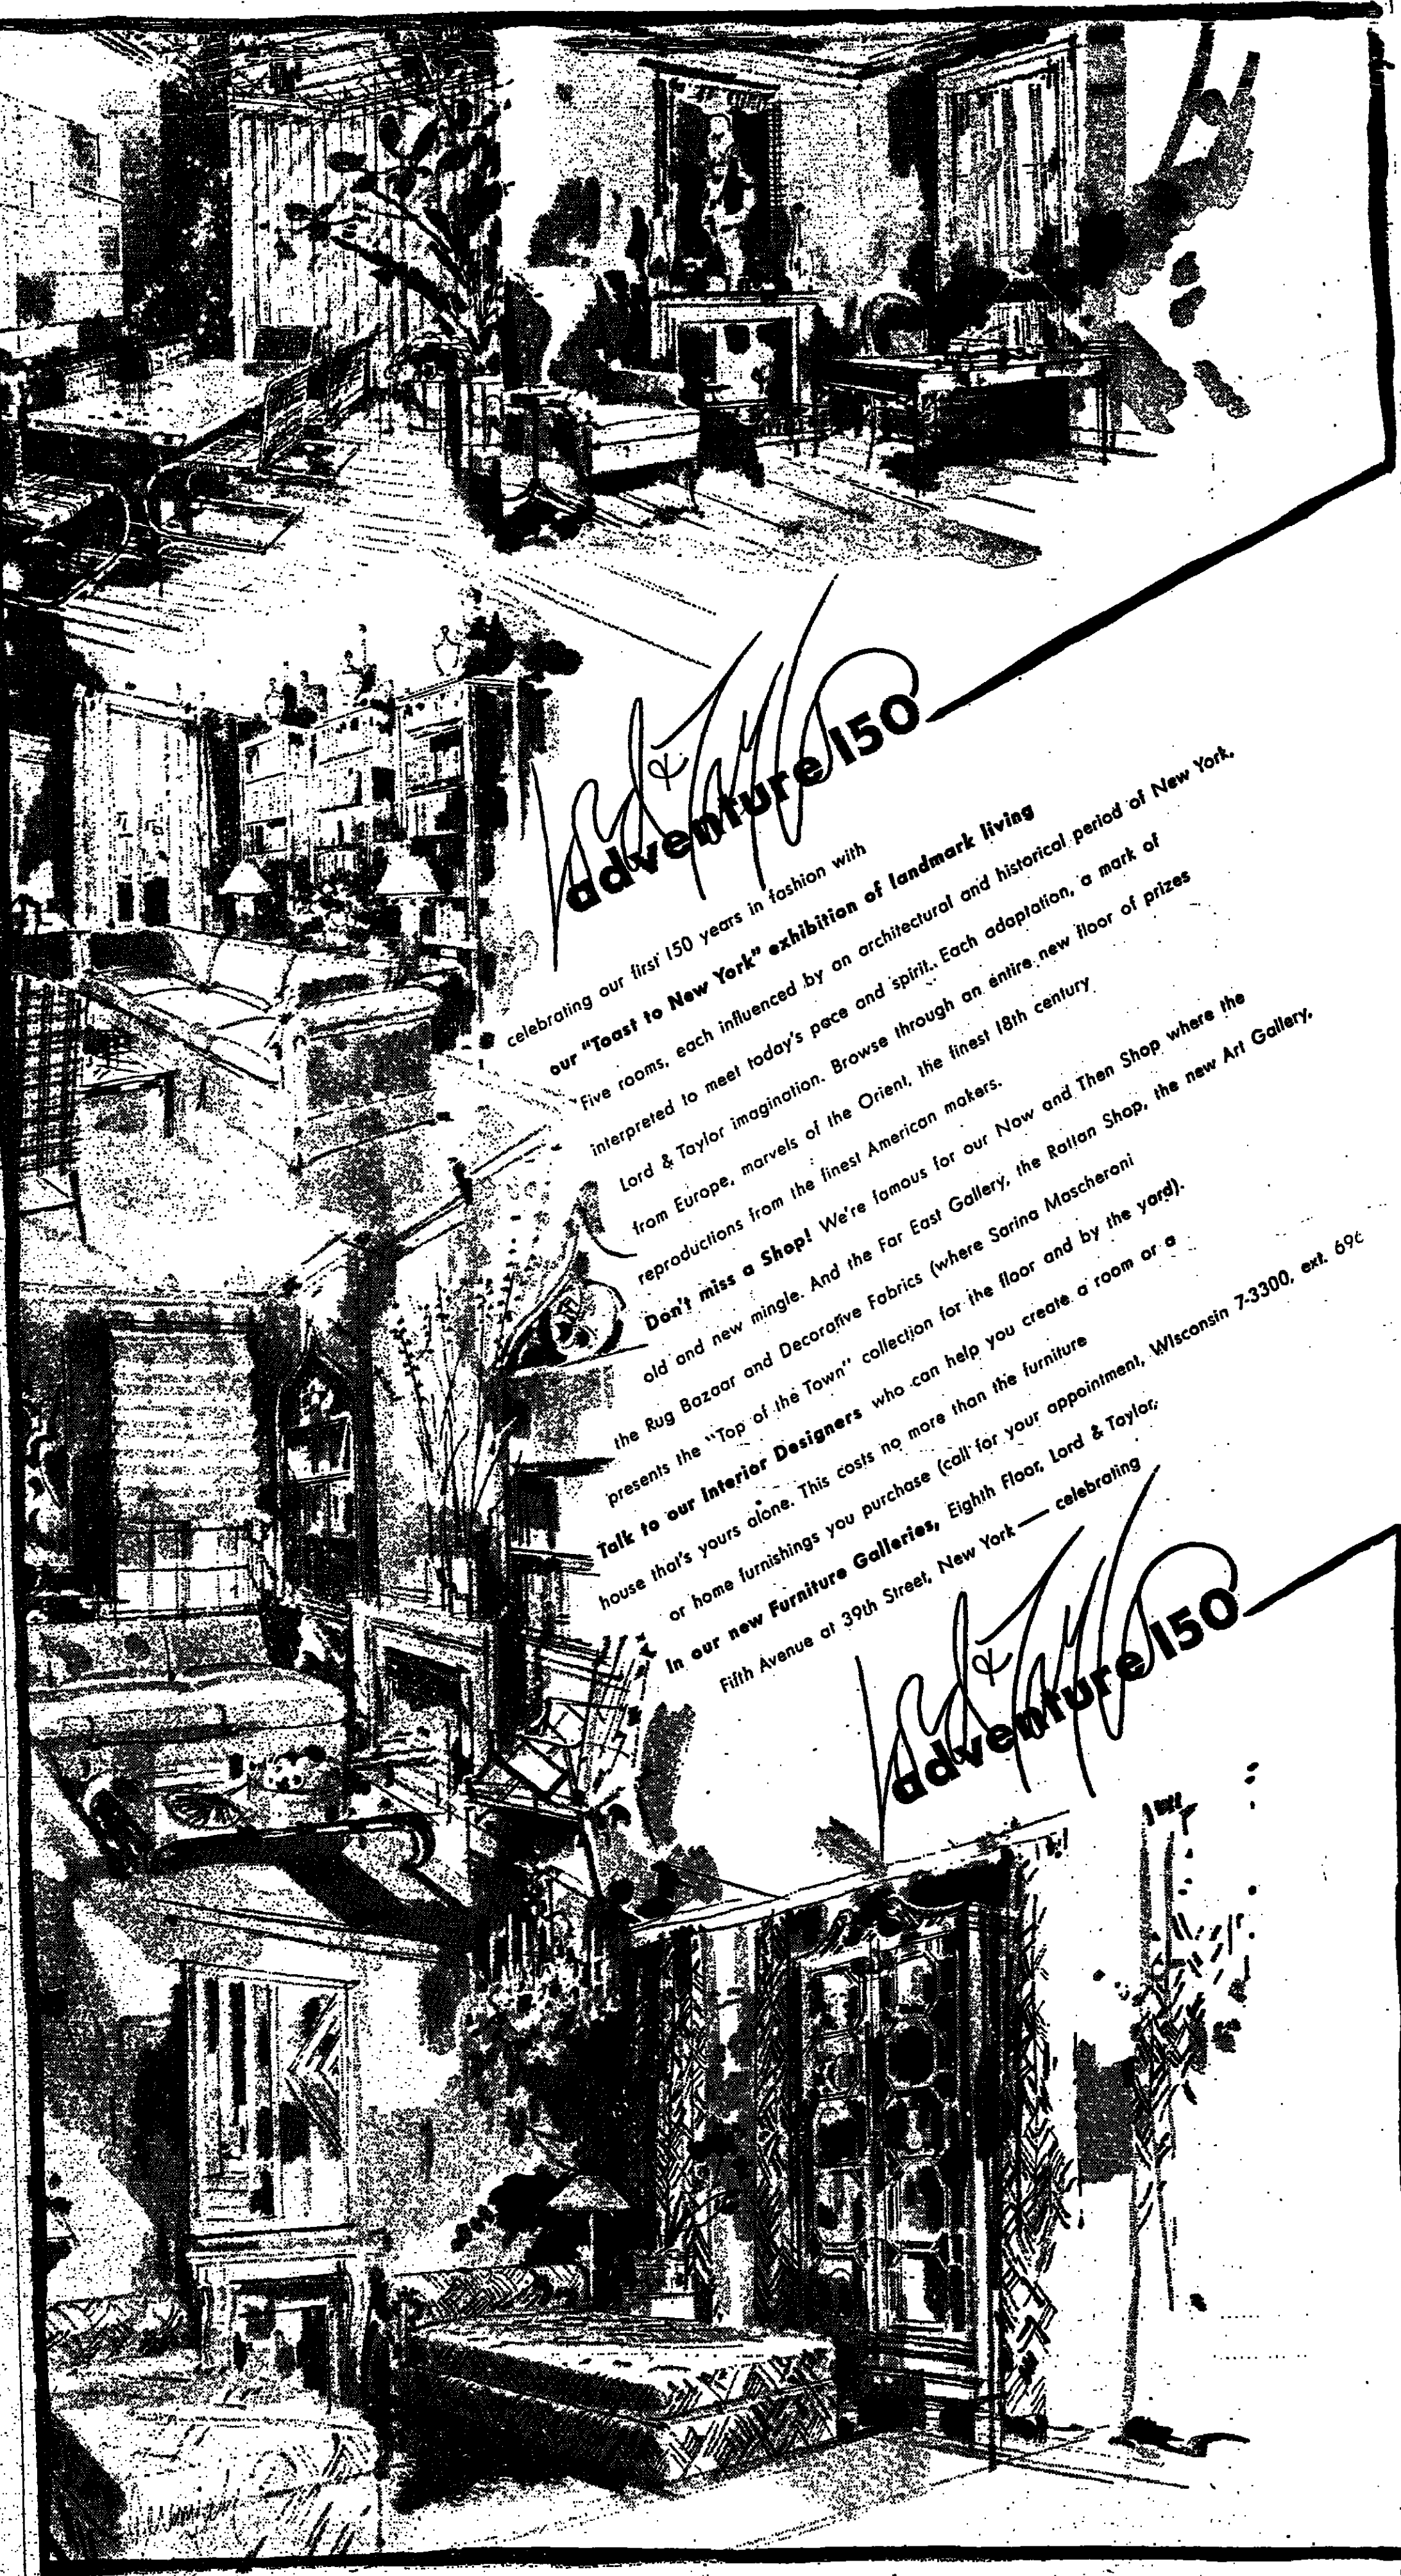 Lord & Taylor
adventure 150
celebrating our first 150 years in fashion with
our "Toast to New York" exhibition of landmark living
Five rooms, each influenced by an architectural and historical period of New York,
interpreted to meet today's pace and spirit. Each adaptation, a mark of
Lord & Taylor imagination. Browse through an entire new floor of prizes
from Europe, marvels of the Orient, the finest 18th century
reproductions from the finest American makers.
Don't miss a Shop! We're famous for our Now and Then Shop where the
old and new mingle. And the Far East Gallery, the Rattan Shop, the new Art Gallery,
the Rug Bazaar and Decorative Fabrics (where Sarina Mascheroni
presents the "Top of the Town" collection for the floor and by the yard).
Talk to our Interior Designers who can help you create a room or a
house that's yours alone. This costs no more than the furniture
or home furnishings you purchase (call for your appointment, WIsconsin 7-3300, ext.
In our new Furniture Galleries, Eighth Floor, Lord & Taylor,
Fifth Avenue at 39th Street, New York — celebrating
Lord & Taylor
adventure 150